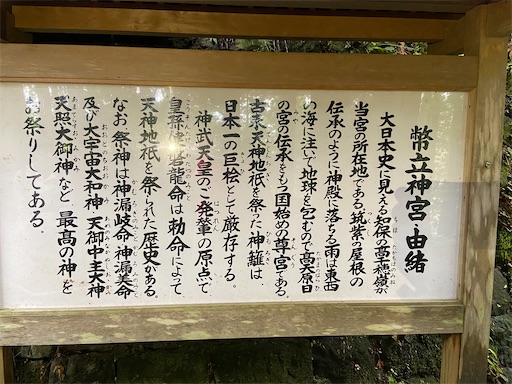 幣立神宮・由緒
大日本史に見える知保の高千穂嶺が
当宮の所在地である。筑紫の屋根の
伝承のように神殿に落ちる雨は東西
の海に注いで地球を包むので高天原日
の宮の伝承をもつ国始めの尊宮である。
古来天神地祇を祭った神籬は、
日本一の巨桧として厳存する。
神武天皇のご発輦の原点で、
皇孫健磐龍命は勅命によって
天神地祇を祭られた歴史がある。
なお、祭神は神漏岐命・神漏美命
及び大宇宙大和神・天御中主大神
天照大御神など最高の神を
お祭りしてある。